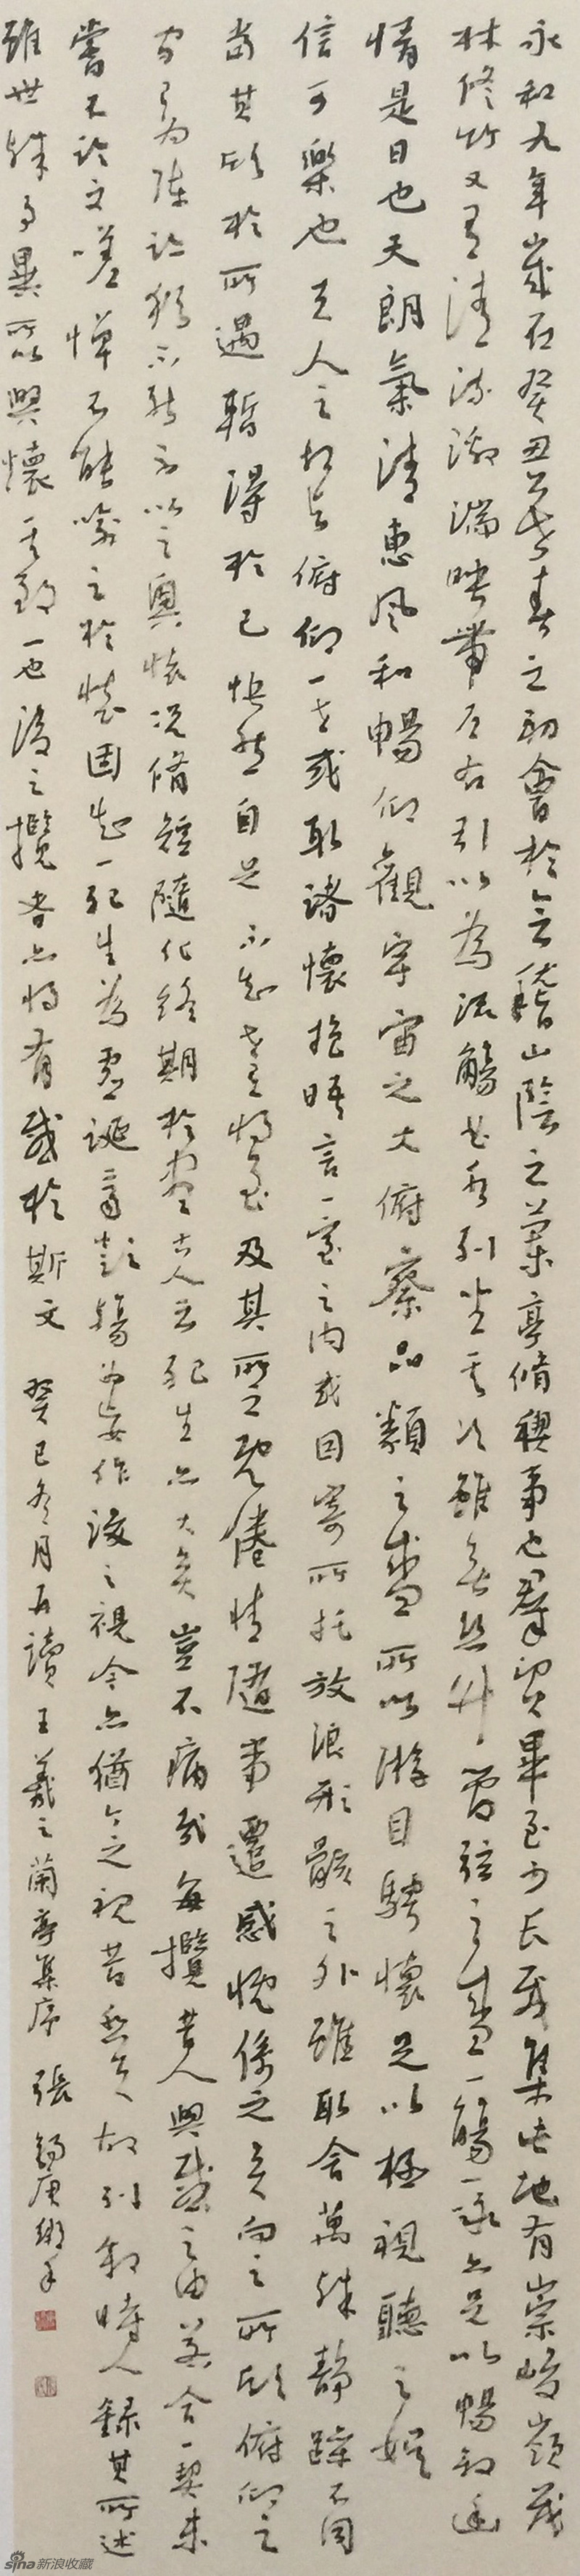 永和九年歲在癸丑暮春之初會於會稽山陰之蘭亭脩稧事也羣賢畢至少長咸集此地有崇峻嶺茂
林修竹又有清流激湍映帶左右引以為流觴曲水列坐其次雖無絲竹管弦之盛一觴一詠亦足以暢敘幽
情是日也天朗氣清惠風和暢仰觀宇宙之大俯察品類之盛所以游目騁懷足以極視聽之娛
信可樂也夫人之相與俯仰一世或取諸懷抱晤言一室之內或因寄所托放浪形骸之外雖取舍萬殊靜躁不同
當其欣於所遇暫得於己怏然自足不知老之將至及其所之既倦情隨事遷感慨係之矣向之所欣俯仰之
間已為陳迹猶不能不以之興懷況脩短隨化終期於盡古人云死生亦大矣豈不痛哉每攬昔人興感之由若合一契未
嘗不臨文嗟悼不能喻之於懷固知一死生為虛誕齊彭殤為妄作後之視今亦猶今之視昔悲夫故列敘時人錄其所述
雖世殊事異所以興懷其致一也後之攬者亦將有感於斯文 癸巳冬月再讀王羲之蘭亭集序 張錫庚
sina新浪收藏